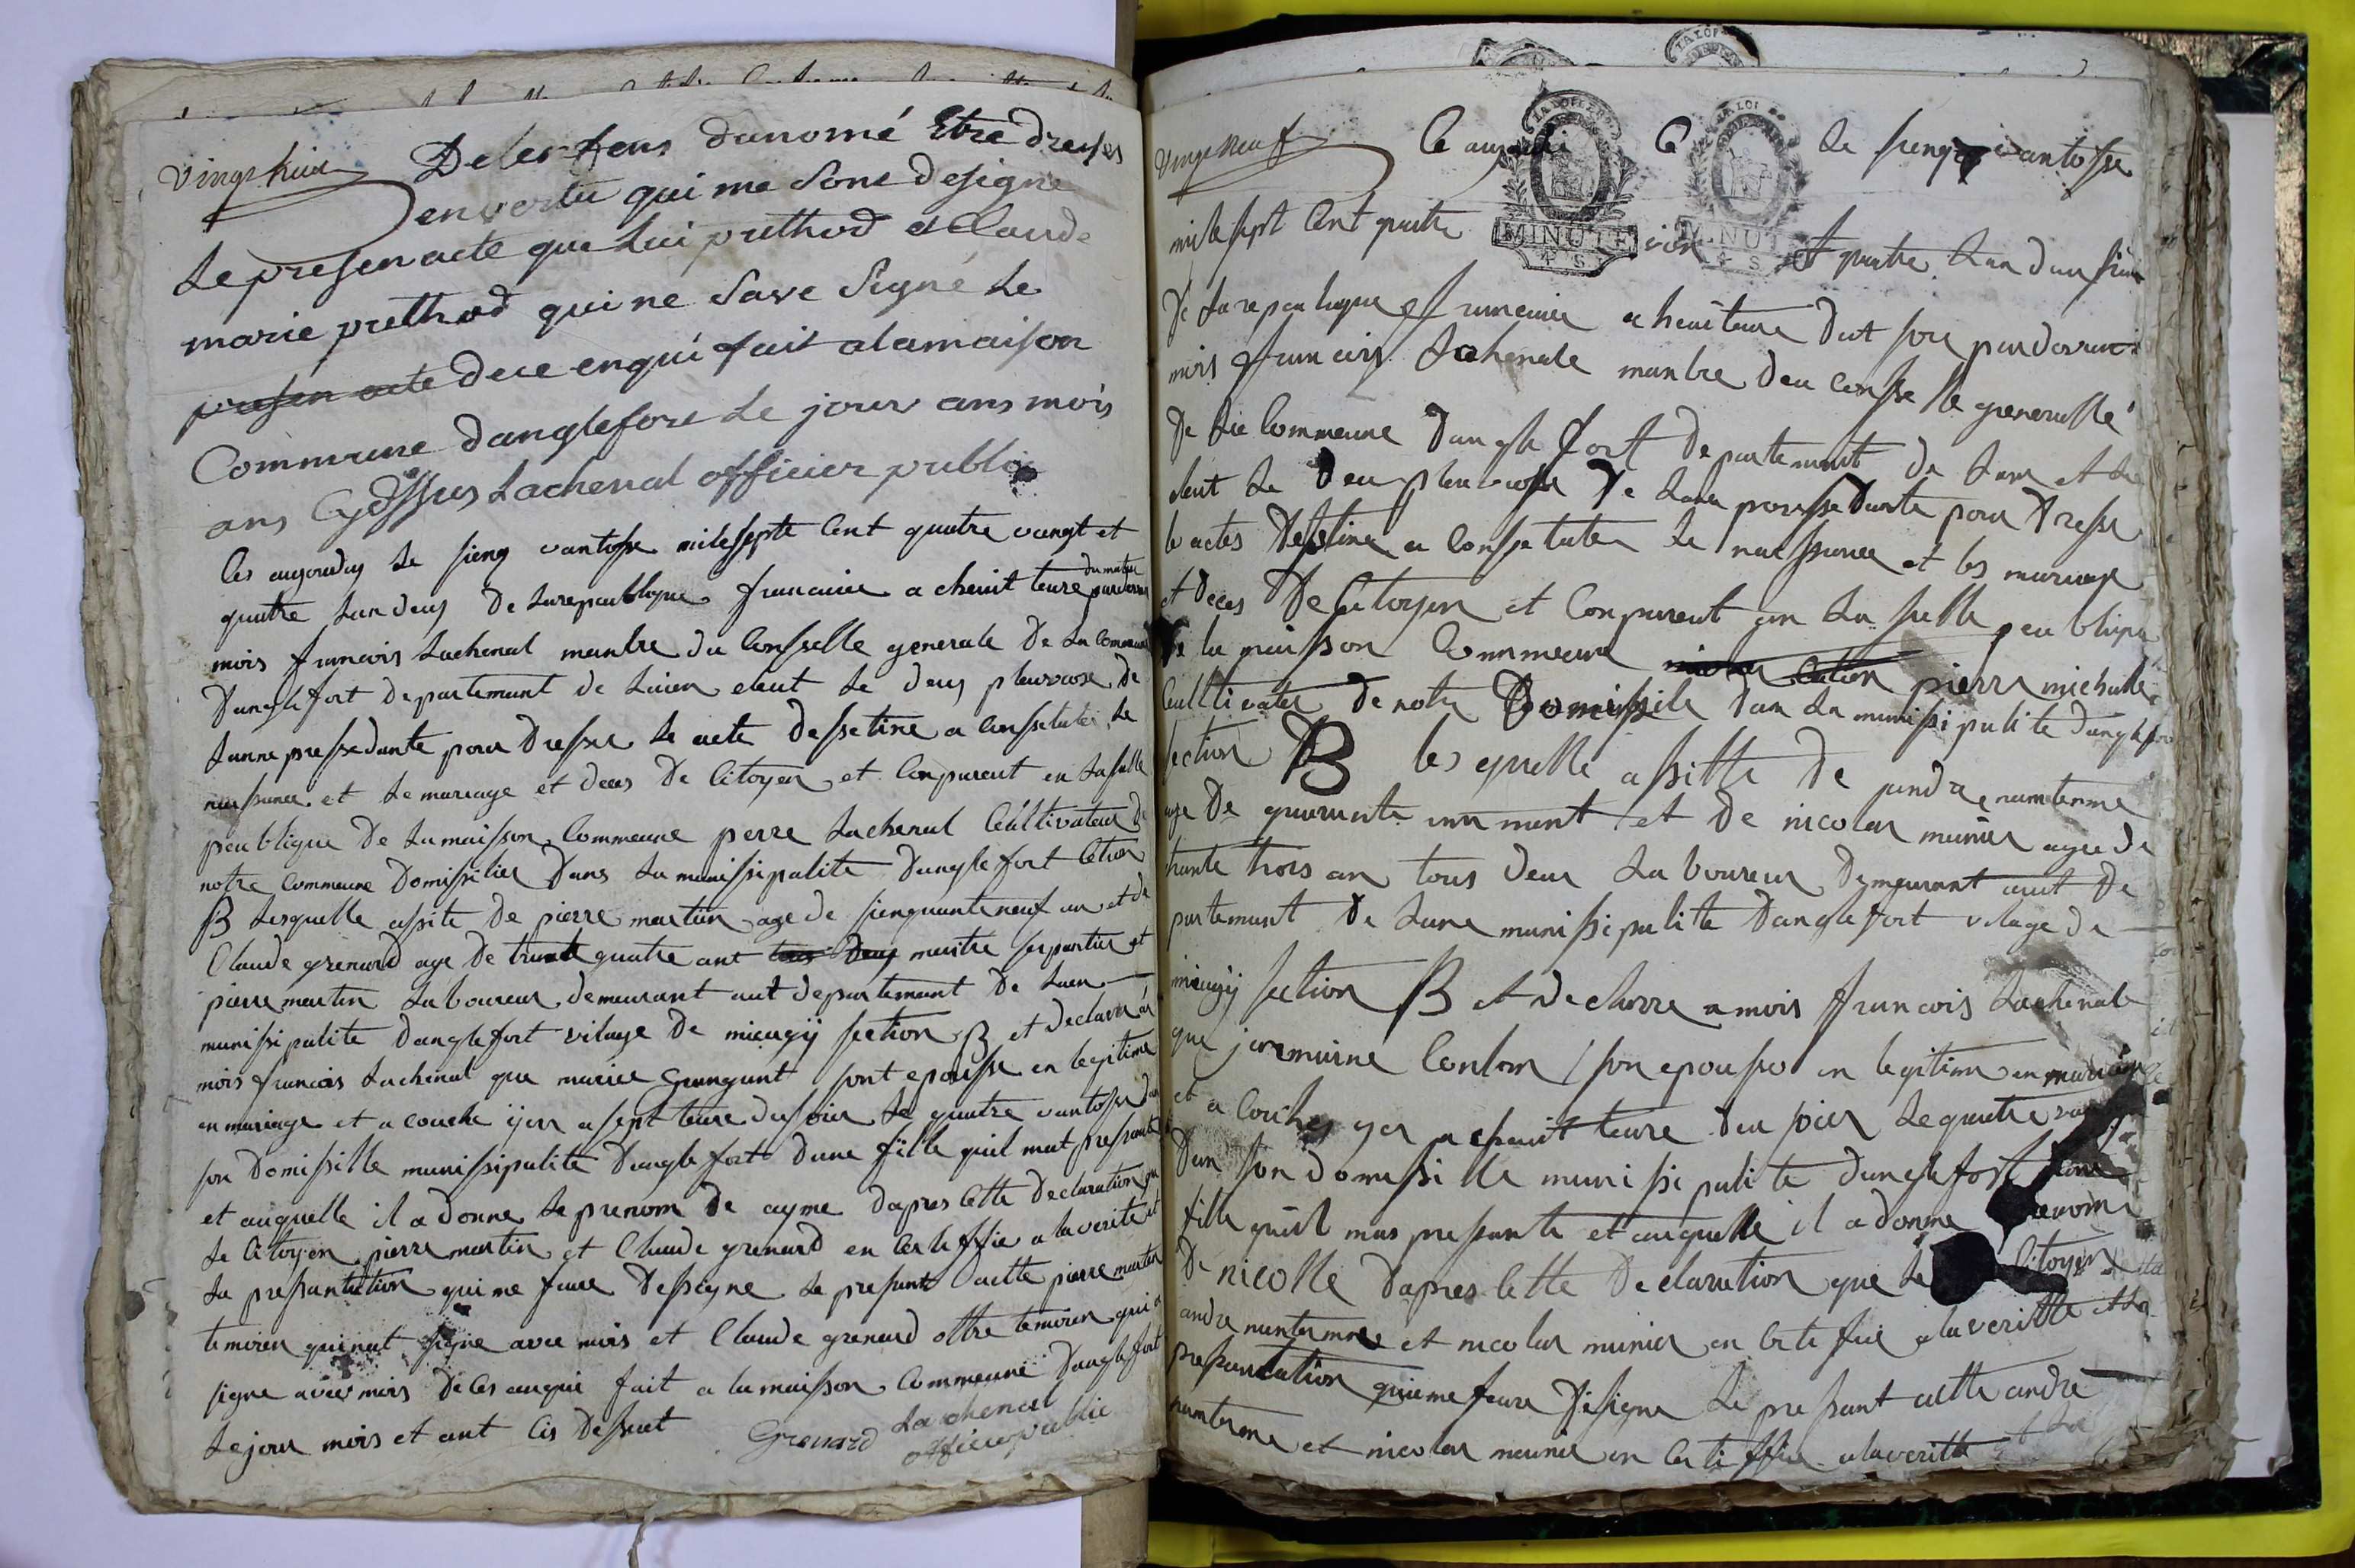 vingt huit
De les fens danomé Etre dresses
en vertu qui me sont designe
le presen acte que lui prethod et Claude
marie prethod qui ne save signé le
presen acte de ce enqui fait a la maison
Commune danglefort le jour ans mois
ans Cydessus Lachenal officier public
Ces aujourduy le sienq vantosse mile septe Cent quatre vangt et
quatre lan deuy de la repeublique francaise a cheuit teure du matin pardevant
mois francois Lachenal manbre du Consselle generale de la Commune
Danglefort departemant de Laien eleut le deuy pleuviose de
lanne pressedante pour dresser le acte dessetine a Conssetater le
naissance et le mariage et deces de Citoyen et Conparent en la salle
peublique de la maisson Commeune pierre Lachenal Cultivateur de
notre Commeune Domissilier dans la munissipalite danglefort section
B lesquelle assite de pierre martin age de sienquante neuf an et de
Claude grenard age de trante quatre ant tous deuy
pierre martin laboureur demeurant aut departemant de Laen
munissipalite danglefort vilage de mieugij section B et declare a
mois francois Lachenal que mariee sont epousse en legitime
en mariage et a couche ijer a sept teure du soir le quatre vantosse dans
son domissille munissipalite danglefort dune fille quil mat presante
et auquelle il a donne le prenom de ayme dapres Cette declaration que
le Citoyen pierre martin et Claude grenard en Certiffie a la verite et
la pressantation qui me faue dessigne le presant actte pierre martin
temoien qui nat signe avec mois et Claude grenard ottre temoien qui a
signe avec mois de Ces auqui fait a la maisson Commeune danglefort
le jour mois et ant Cis dessut
Grenard Lachenal
officier public
vingt neuf
Ce aujourdui le sienq vantosse
mile sept Cent quatre vian et quatre lan deu
de la repeuligue francaise a heuiteure dut soir pardevant
mois francois Lachenale manbre deu Consselle generalle
de lie Commeune danglefort departemant de Lane et le
eleut le deu pleuviosse de lane pressedante pour dresse
le actes desstine a Conssetater le naissance et les mariage
et deces de Citoyen et Conparent en la salle peublique
de la maisson Commeune pierre michalle
Cultivater de notre Domissile dan la munissipalite danglefort
section B lesquelle assitte de andre namterme
age de quarante et de nicolas munier agee de
trante trois an tous deux laboureur Demeurant aut de
partemant de Lane munissipalite danglefort vilage de
mieugij section B et declarre a mois francois Lachenale
que jermaine Conlon son epousso en legitime en mariage
et a Couches yer a cheuit teure deu soir le quatre
dan son domissille munissipalite danglefort dune
fille quil mas pressante et auquelle il a donne prenom
de nicolle dapres Cette declaration que le Citoyen
andre namterme et nicolas munier en Certifie a la veritte et la
pressantation quieme feure dessigne le pressant actte andre
namterme et nicolas meunier en Certiffie a la veritte et la
LA LOI
MINUTE
LA LOI
MINUTE